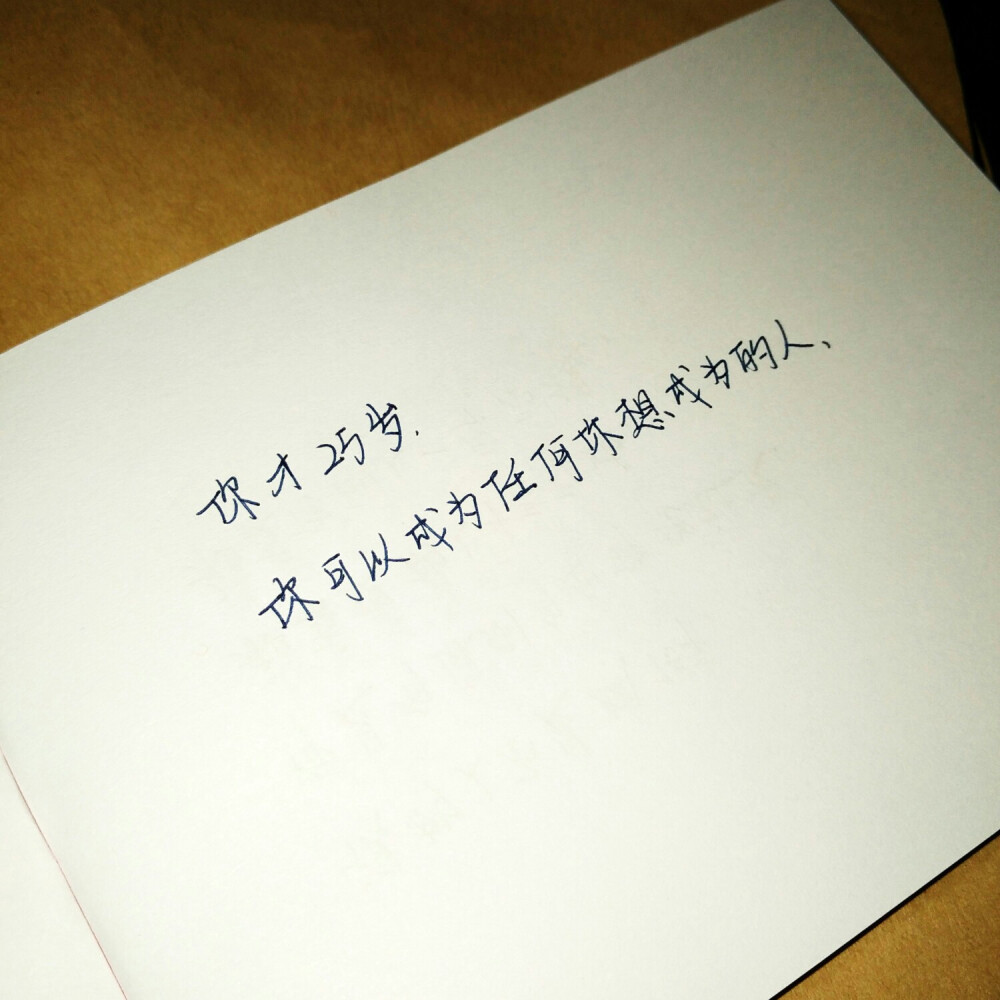 你才25岁.
你可以成为任何你想成为的人、